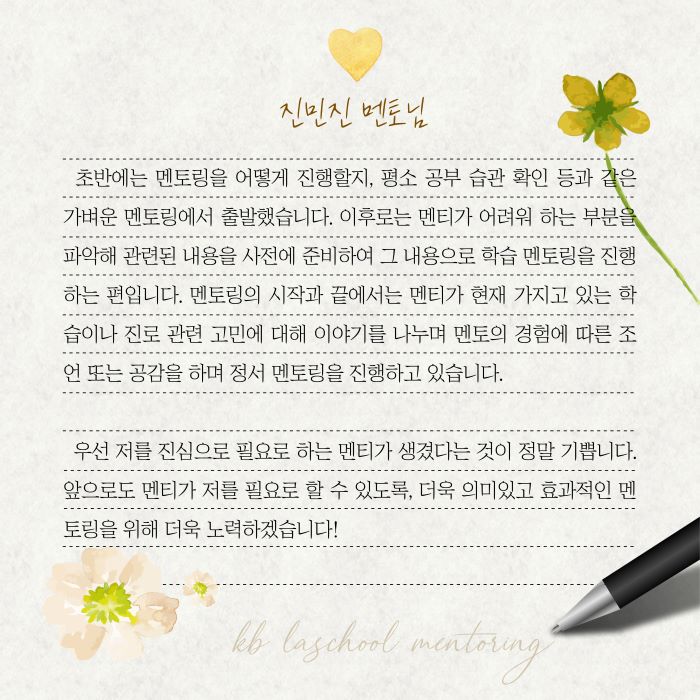 진민진 멘토님
초반에는 멘토링을 어떻게 진행할지, 평소 공부 습관 확인 등과 같은
가벼운 멘토링에서 출발했습니다. 이후로는 멘티가 어려워 하는 부분을
파악해 관련된 내용을 사전에 준비하여 그 내용으로 학습 멘토링을 진행
하는 편입니다. 멘토링의 시작과 끝에서는 멘티가 현재 가지고 있는 학
습이나 진로 관련 고민에 대해 이야기를 나누며 멘토의 경험에 따른 조
언 또는 공감을 하며 정서 멘토링을 진행하고 있습니다.
우선 저를 진심으로 필요로 하는 멘티가 생겼다는 것이 정말 기쁩니다.
앞으로도 멘티가 저를 필요로 할 수 있도록, 더욱 의미있고 효과적인 멘
토링을 위해 더욱 노력하겠습니다!
kb laschool mentoring